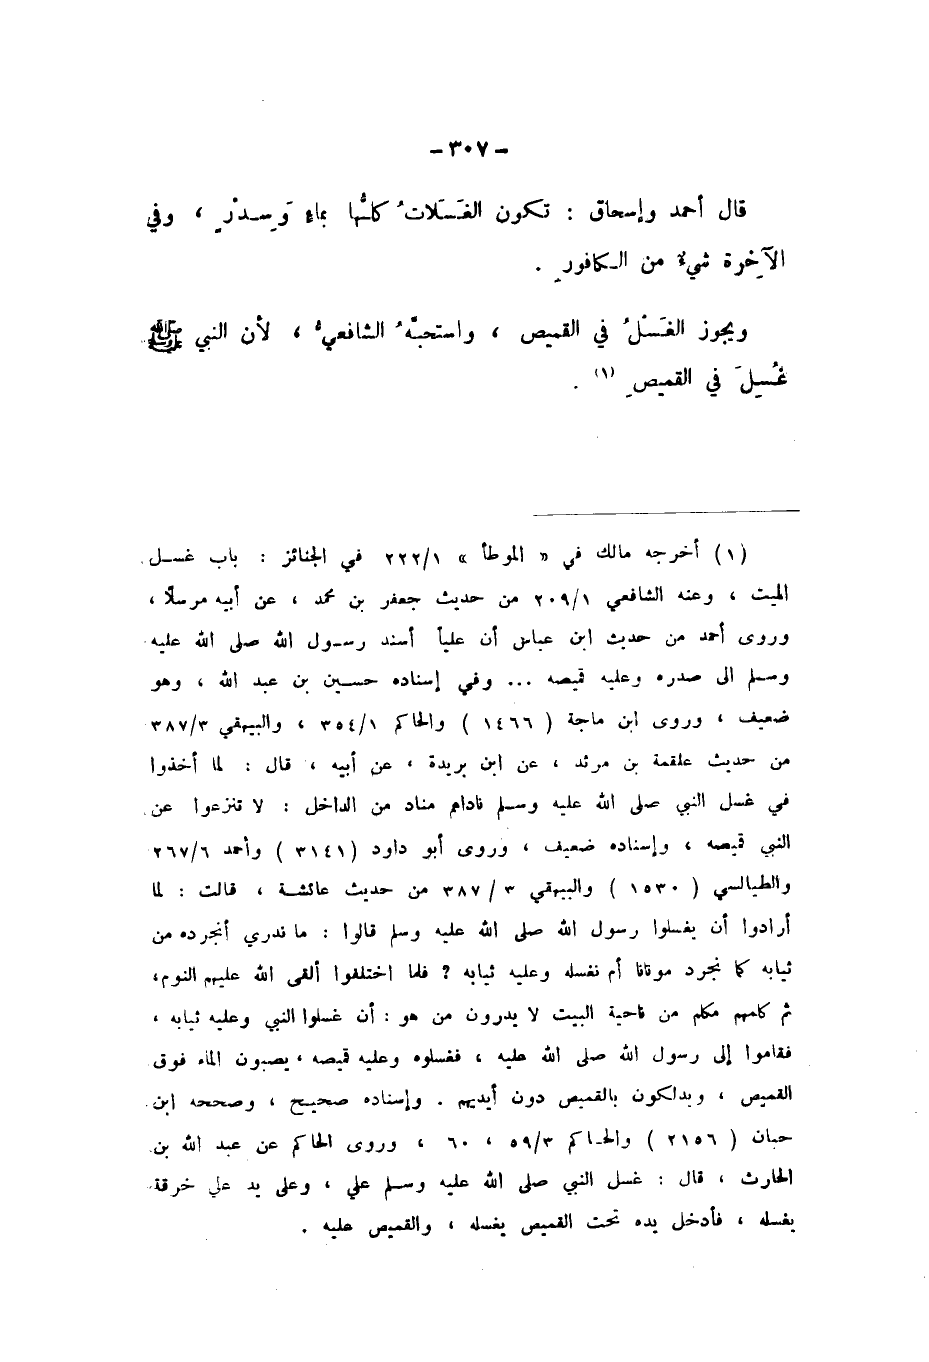 – ٣٠٧ –
قال أحمد وإسحاق : تكون الغَسَلاتُ كلُّها بماءٍ وَسِدْرٍ ، وفي
الآخِرة شيءٌ من الكافورِ .
ويجوز الغَسْلُ في القميص ، واستحبَّهُ الشافعيُّ ، لأن النبي ﷺ
غُسِلَ في القميصِ (١) .
(١) أخرجه مالك في « الموطأ » ٢٢٢/١ في الجنائز : باب غسل
الميت ، وعنه الشافعي ٢٠٩/١ من حديث جعفر بن محمد ، عن أبيه مرسلًا ،
وروى أحمد من حديث ابن عباس أن علياً أسند رسول الله صلى الله عليه
وسلم الى صدره وعليه قميصه ... وفي إسناده حسين بن عبد الله ، وهو
ضعيف ، وروى ابن ماجة ( ١٤٦٦ ) والحاكم ٣٥٤/١ ، والبيهقي ٣٨٧/٣
من حديث علقمة بن مرثد ، عن ابن بريدة ، عن أبيه ، قال : لما أخذوا
في غسل النبي صلى الله عليه وسلم ناداهم مناد من الداخل : لا تنزعوا عن
النبي قميصه ، وإسناده ضعيف ، وروى أبو داود (٣١٤١ ) وأحمد ٢٦٧/٦
والطيالسي ( ١٥٣٠ ) والبيهقي ٣ / ٣٨٧ من حديث عائشة ، قالت : لما
أرادوا أن يغسلوا رسول الله صلى الله عليه وسلم قالوا : ما ندري أنجرده من
ثيابه كما نجرد موتانا أم نغسله وعليه ثيابه ? فلما اختلفوا ألقى الله عليهم النوم،
ثم كلمهم مكلم من ناحية البيت لا يدرون من هو : أن غسلوا النبي وعليه ثيابه ،
فقاموا إلى رسول الله صلى الله عليه ، فغسلوه وعليه قميصه ، يصبون الماء فوق
القميص ، ويدلكون بالقميص دون أيديهم . وإسناده صحيح ، وصححه ابن
حبان ( ٢١٥٦ ) والحاكم ٥٩/٣ ، ٦٠ ، وروى الحاكم عن عبد الله بن
الحارث ، قال : غسل النبي صلى الله عليه وسلم علي ، وعلى يد علي خرقة
يغسله ، فأدخل يده تحت القميص يغسله ، والقميص عليه .